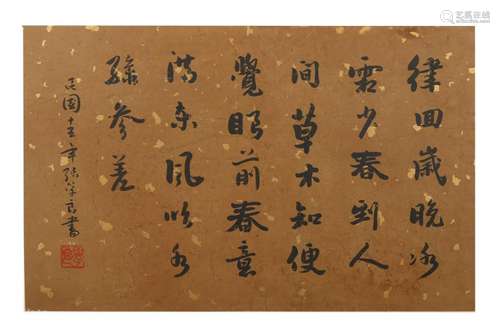 律回歲晚冰
霜少春到人
間草木知便
覺眼前春意
滿東風吹水
綠參差
民國十五年張學良書
艺狐在线